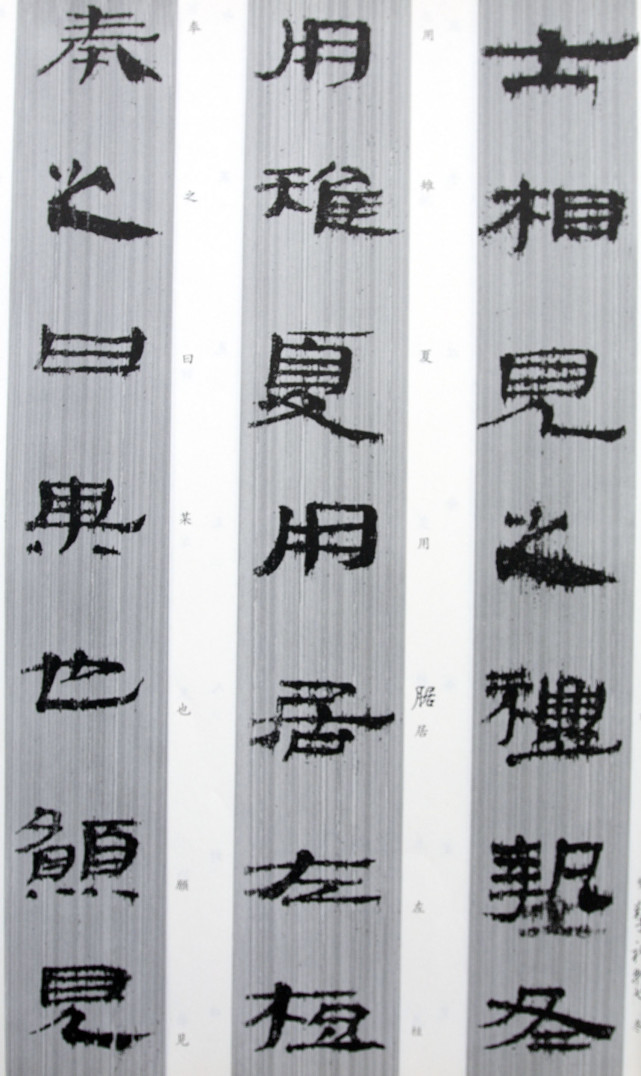 士相見之禮摯冬
用雉夏用腒居左
用雉夏用居左梪
奉之曰某也願見
奉之曰某也願見